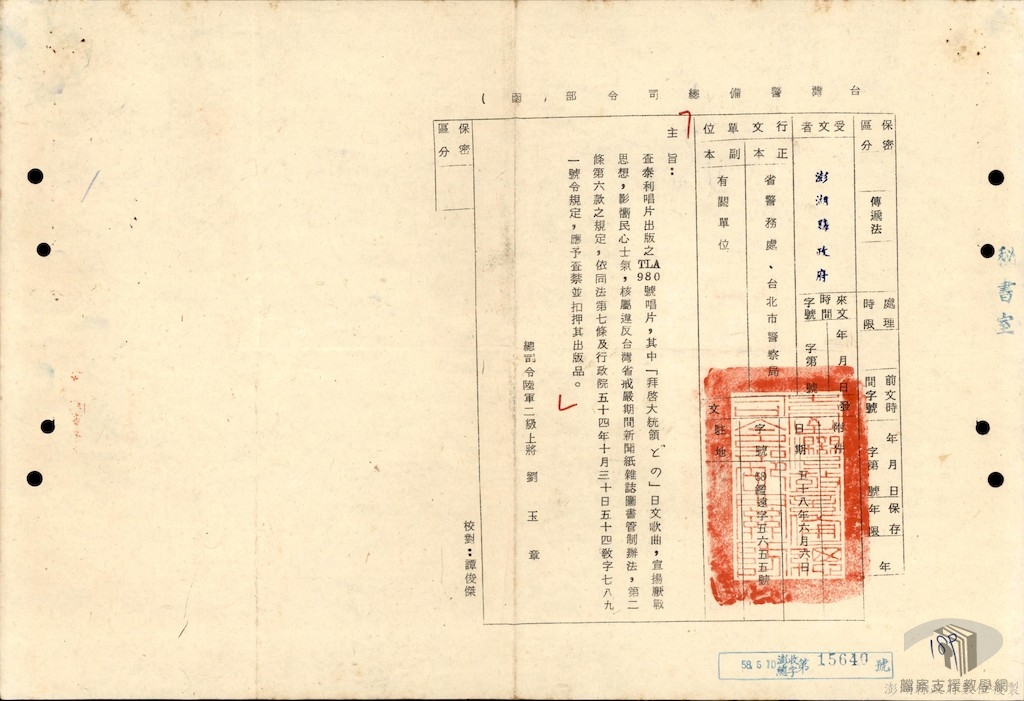 台灣警備總司令部 函（
保密區分
傳遞法
處理時限
前文時間字號
年 月 日
字第 號
保存年限
年
受文者
澎湖縣政府
來文時間字號
年 月 日
字第 號
行文單位
正本
省警務處、台北市警察局
副本
有關單位
發文
附件
日期
五十八年六月六日
字號
58鑑遠字五六五五號
駐地
主旨：
查泰利唱片出版之TLA980號唱片，其中「拜啓大統領どの」日文歌曲，宣揚厭戰
思想，影響民心士氣，核屬違反台灣省戒嚴期間新聞紙雜誌圖書管制辦法，第二
條第六款之規定，依同法第七條及行政院五十四年十月三十日五十四教字七八九
一號令規定，應予查禁並扣押其出版品。
總司令陸軍二級上將 劉玉章
校對：譚俊傑
保密區分
秘書室
58.6.10
澎收總字第 15640 號
189
檔案支援教學網